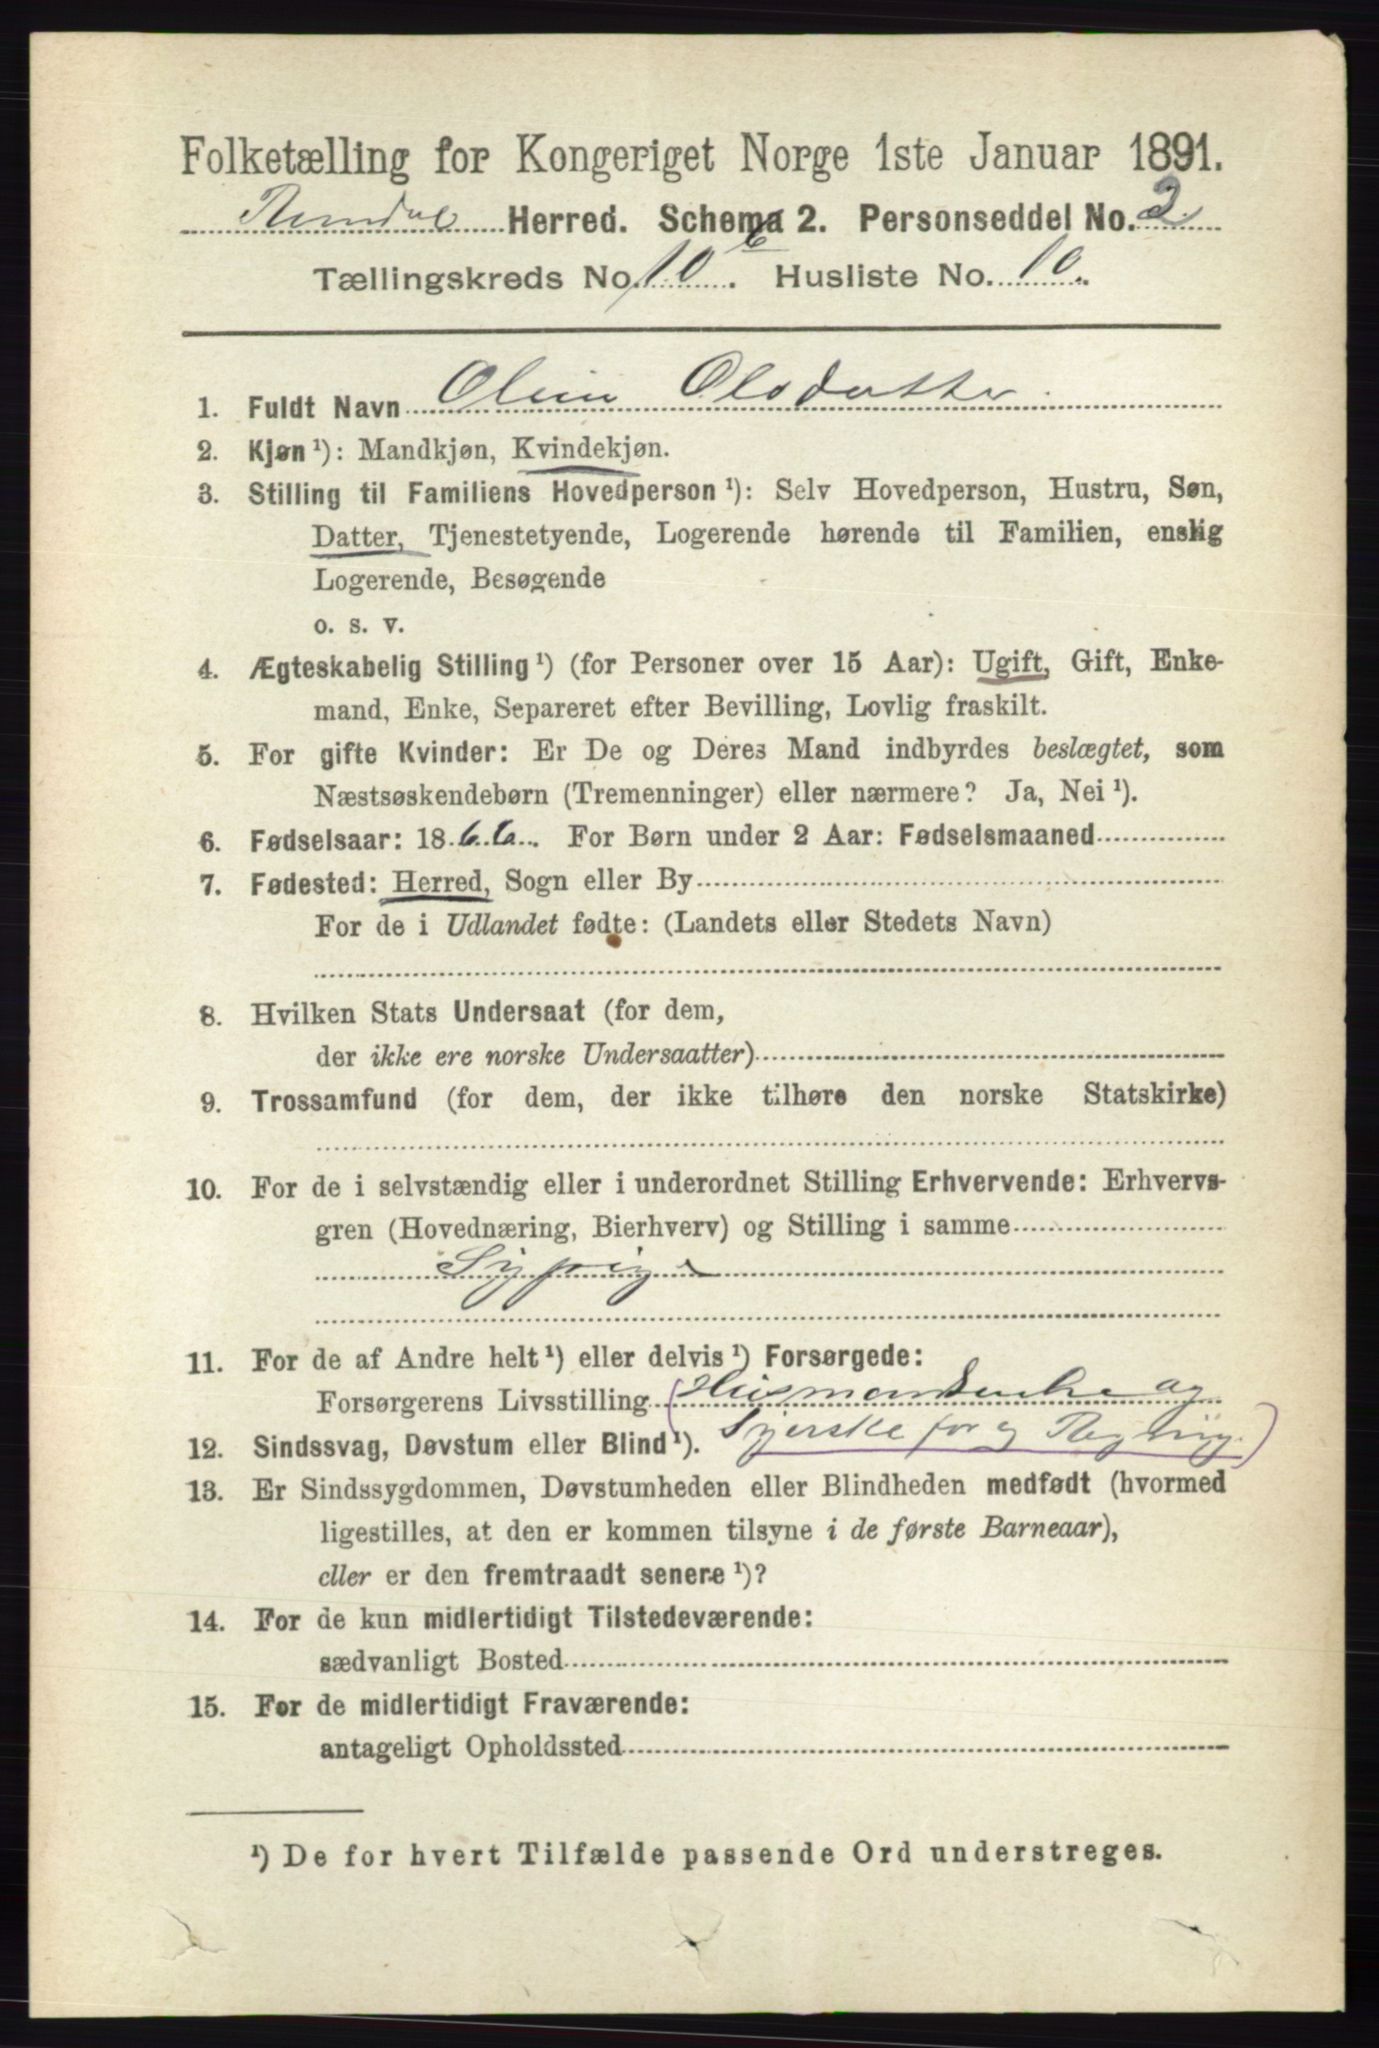 Folketælling for Kongeriget Norge 1ste Januar 1891.
Rendal Herred. Schema 2. Personseddel No. 2.
Tællingskreds No. 10 b. Husliste No. 10.
1. Fuldt Navn Oline Olsdatter.
2. Kjøn ¹): Mandkjøn, Kvindekjøn.
3. Stilling til Familiens Hovedperson ¹): Selv Hovedperson, Hustru, Søn,
Datter, Tjenestetyende, Logerende hørende til Familien, enslig
Logerende, Besøgende
o. s. v.
4. Ægteskabelig Stilling ¹) (for Personer over 15 Aar): Ugift, Gift, Enke-
mand, Enke, Separeret efter Bevilling, Lovlig fraskilt.
5. For gifte Kvinder: Er De og Deres Mand indbyrdes beslægtet, som
Næstsøskendebørn (Tremenninger) eller nærmere? Ja, Nei ¹).
6. Fødselsaar: 1866. For Børn under 2 Aar: Fødselsmaaned
7. Fødested: Herred, Sogn eller By
For de i Udlandet fødte: (Landets eller Stedets Navn)
8. Hvilken Stats Undersaat (for dem,
der ikke ere norske Undersaatter)
9. Trossamfund (for dem, der ikke tilhøre den norske Statskirke)
10. For de i selvstændig eller i underordnet Stilling Erhvervende: Erhvervs-
gren (Hovednæring, Bierhverv) og Stilling i samme
Sypige
11. For de af Andre helt ¹) eller delvis ¹) Forsørgede:
Forsørgerens Livsstilling (Husmandsenke og
12. Sindssvag, Døvstum eller Blind ¹). Syerske for
13. Er Sindssygdommen, Døvstumheden eller Blindheden medfødt (hvormed
ligestilles, at den er kommen tilsyne i de første Barneaar),
eller er den fremtraadt senere ¹)?
14. For de kun midlertidigt Tilstedeværende:
sædvanligt Bosted
15. For de midlertidigt Fraværende:
antageligt Opholdssted
¹) De for hvert Tilfælde passende Ord understreges.